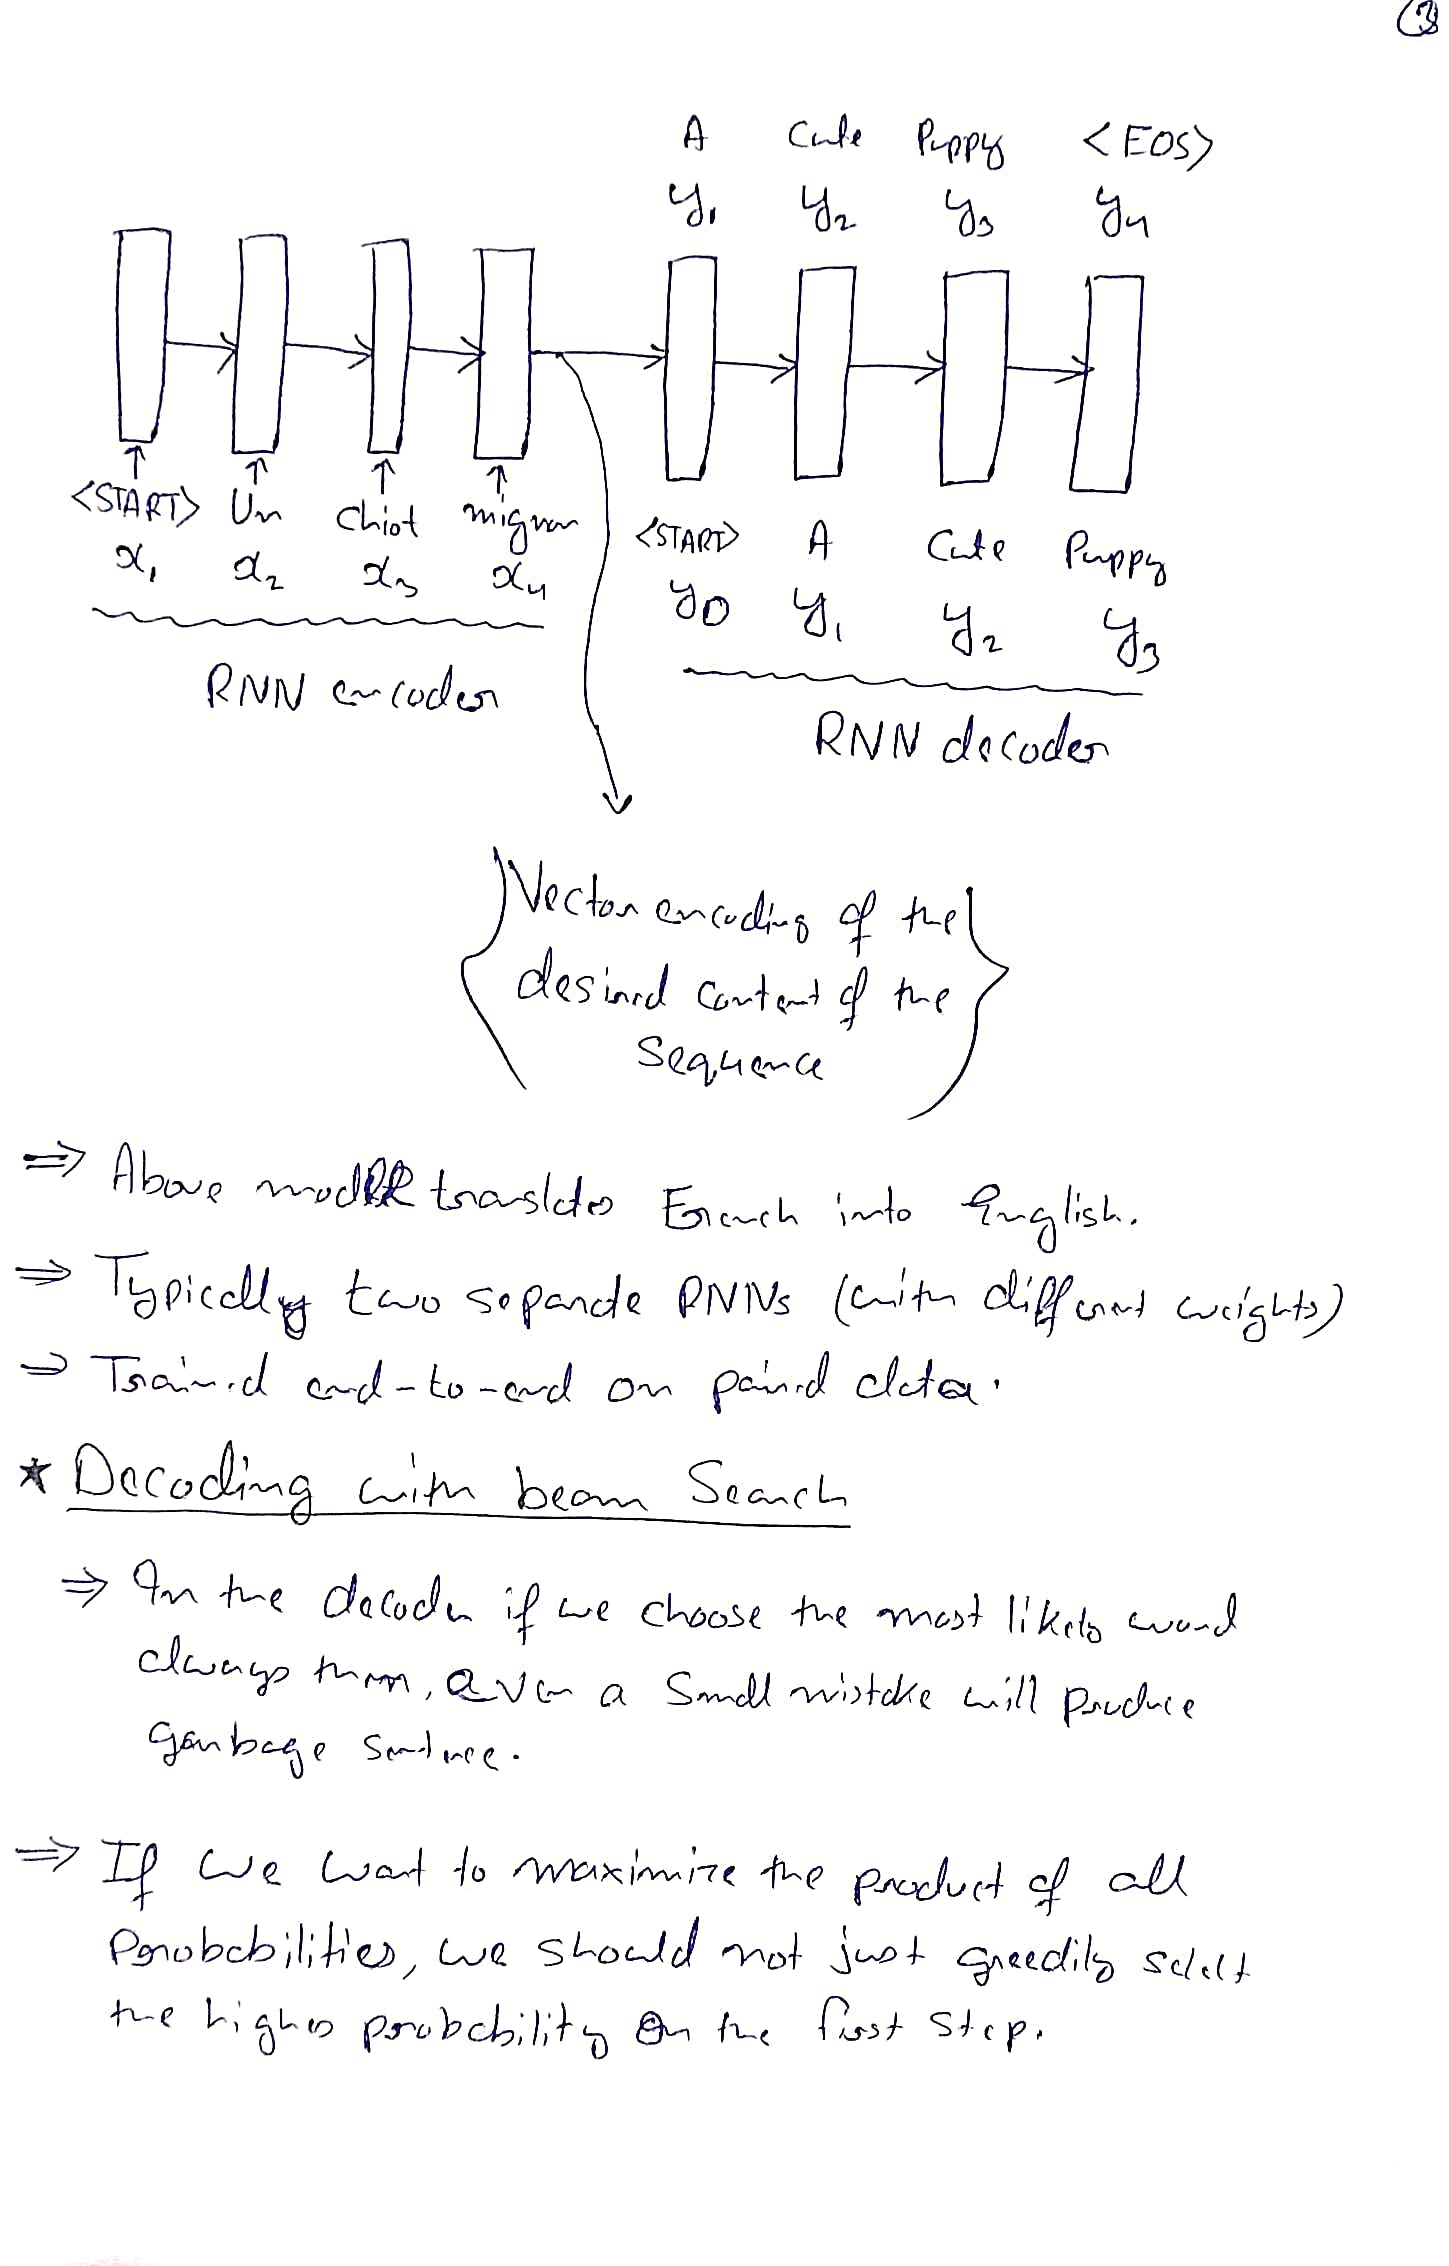 3
A Cute Puppy <EOS>
y₁ y₂ y₃ y₄
<START> Un Chiot mignon
x₁ x₂ x₃ x₄
<START> A Cute Puppy
y₀ y₁ y₂ y₃
RNN encoder
RNN decoder
Vector encoding of the
desired content of the
Sequence
⇒ Above model translates French into English.
⇒ Typically two separate RNNs (with different weights)
⇒ Trained end-to-end on paired data.
★ Decoding with beam Search
⇒ In the decoder if we choose the most likely word
always then, even a small mistake will produce
garbage sentence.
⇒ If we want to maximize the product of all
Probabilities, we should not just greedily select
the highes probability on the first step.